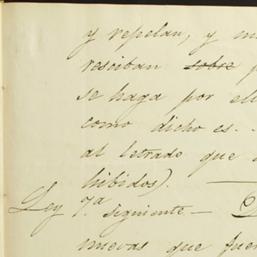 y repelan, y m
resciban sobre p
se haga por el
como dicho es.
al letrado que
hibidos).
Ley 7ª siguiente -
nuevas que fuer